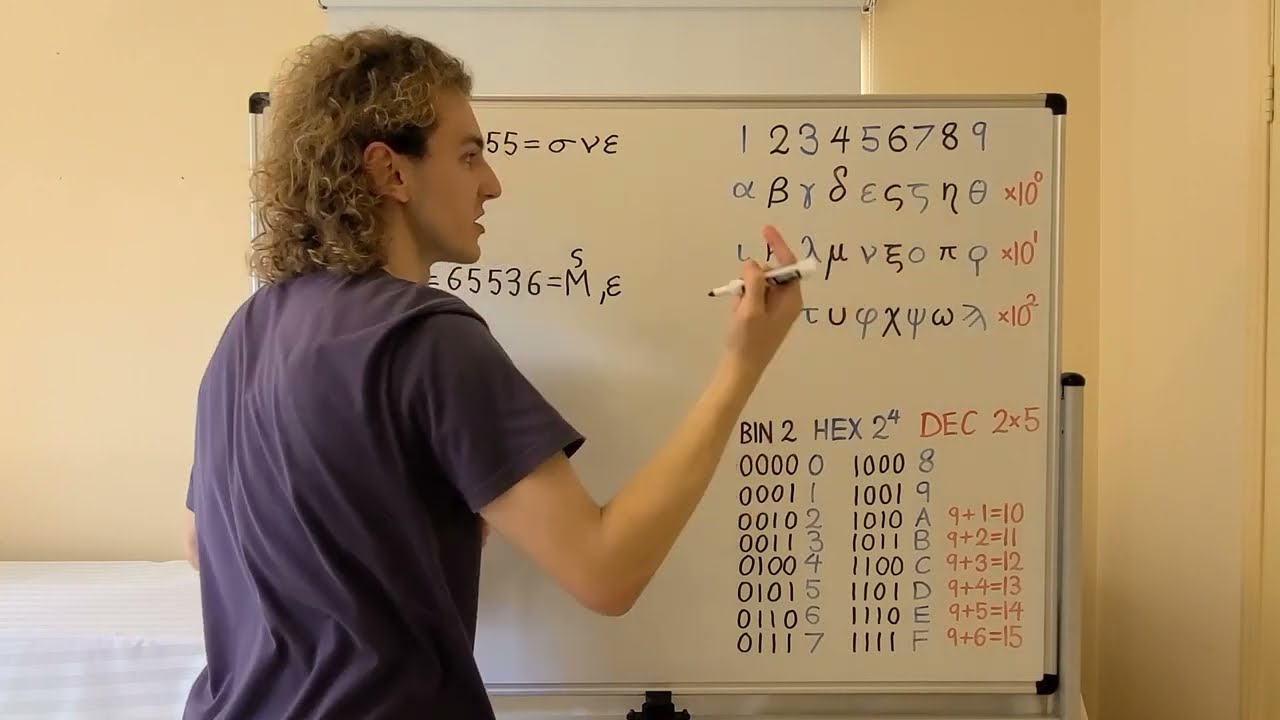 55=σνε
=65536=Μ,ε
ς
1 2 3 4 5 6 7 8 9
α β γ δ ε ς ζ η θ ×10⁰
ι λ μ ν ξ ο π ϙ ×10¹
τ υ φ χ ψ ω ϡ ×10²
BIN 2 HEX 2⁴ DEC 2×5
0000 0 1000 8
0001 1 1001 9
0010 2 1010 A 9+1=10
0011 3 1011 B 9+2=11
0100 4 1100 C 9+3=12
0101 5 1101 D 9+4=13
0110 6 1110 E 9+5=14
0111 7 1111 F 9+6=15